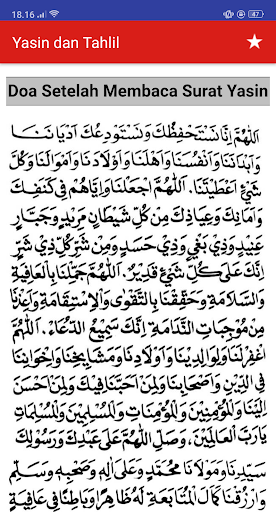 18.16
47
Yasin dan Tahlil
Doa Setelah Membaca Surat Yasin
اَللّٰهُمَّ اِنَّا نَسْتَحْفِظُكَ وَنَسْتَوْدِعُكَ اَدْيَانَنَا
وَاَبْدَانَنَا وَاَنْفُسَنَا وَاَهْلَنَا وَاَوْلَادَنَا وَاَمْوَالَنَا وَكُلَّ
شَيْءٍ اَعْطَيْتَنَا. اَللّٰهُمَّ اجْعَلْنَا وَاِيَّاهُمْ فِي كَنَفِكَ
وَاَمَانِكَ وَعِيَاذِكَ مِنْ كُلِّ شَيْطَانٍ مَرِيْدٍ وَجَبَّارٍ
عَنِيْدٍ وَذِي بَغْيٍ وَذِي حَسَدٍ وَمِنْ شَرِّ كُلِّ ذِي شَرٍّ
اِنَّكَ عَلَى كُلِّ شَيْءٍ قَدِيْرٌ. اَللّٰهُمَّ جَمِّلْنَا بِالْعَافِيَةِ
وَالسَّلَامَةِ وَحَقِّقْنَا بِالتَّقْوَى وَالْاِسْتِقَامَةِ وَاَعِذْنَا
مِنْ مُوْجِبَاتِ النَّدَامَةِ اِنَّكَ سَمِيْعُ الدُّعَاءِ. اَللّٰهُمَّ
اغْفِرْ لَنَا وَلِوَالِدِيْنَا وَاَوْلَادِنَا وَمَشَايِخِنَا وَاِخْوَانِنَا
فِي الدِّيْنِ وَاَصْحَابِنَا وَلِمَنْ اَحَبَّنَا فِيْكَ وَلِمَنْ اَحْسَنَ
اِلَيْنَا وَلِلْمُؤْمِنِيْنَ وَالْمُؤْمِنَاتِ وَالْمُسْلِمِيْنَ وَالْمُسْلِمَاتِ
يَارَبَّ الْعَالَمِيْنَ، وَصَلِّ اللّٰهُمَّ عَلَى عَبْدِكَ وَرَسُوْلِكَ
سَيِّدِنَا وَمَوْلَانَا مُحَمَّدٍ وَعَلَى اٰلِهِ وَصَحْبِهِ وَسَلِّمْ
وَارْزُقْنَا كَمَالَ الْمُتَابَعَةِ لَهُ ظَاهِرًا وَبَاطِنًا فِي عَافِيَةٍ